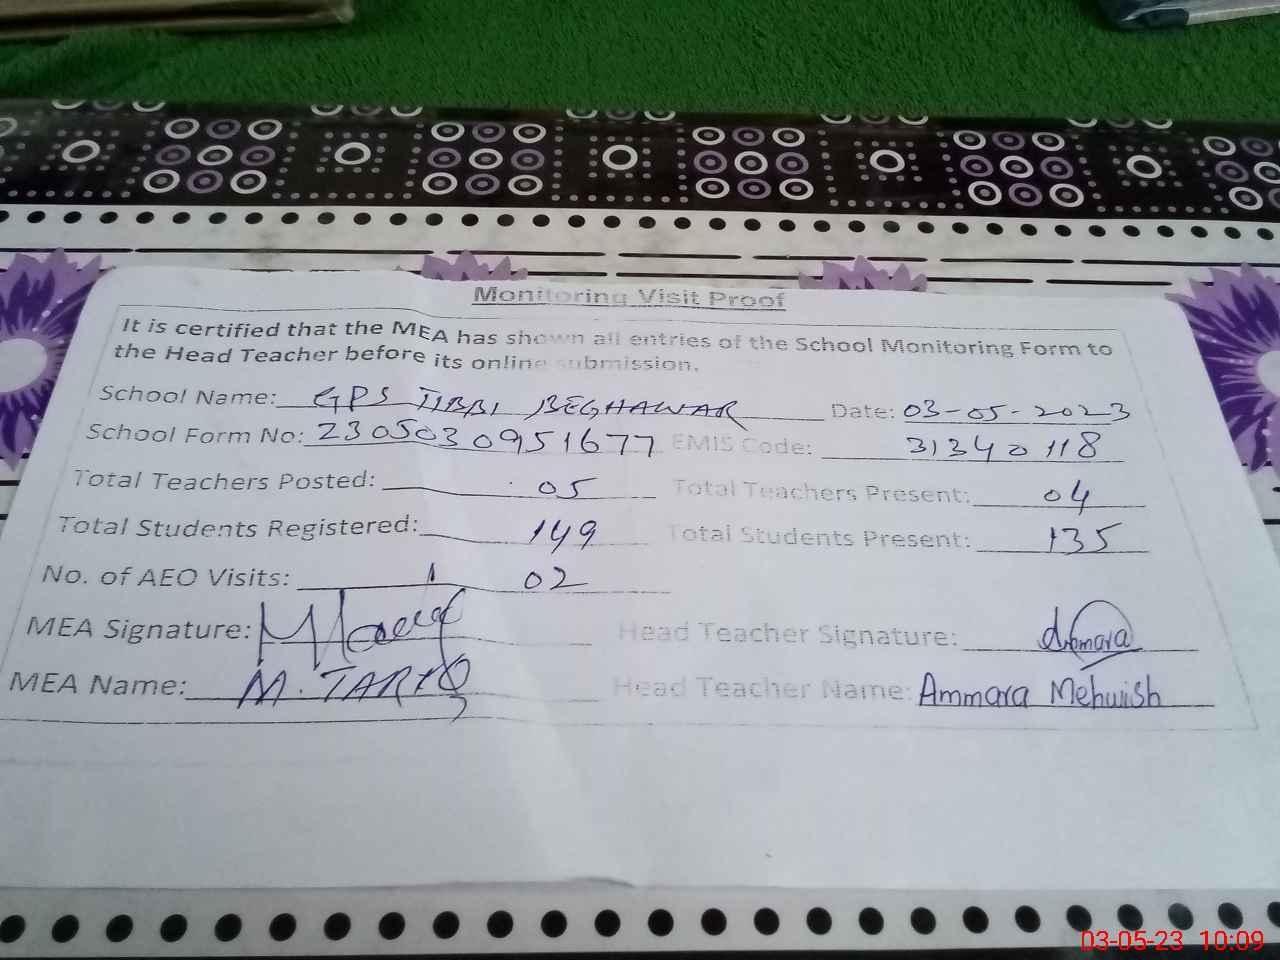 Monitoring Visit Proof
It is certified that the MEA has shown all entries of the School Monitoring Form to
the Head Teacher before its online submission.
School Name: GPS TIBBI BEGHAWAR Date: 03-05-2023
School Form No: 2305030951677 EMIS Code: 31340118
Total Teachers Posted: 05 Total Teachers Present: 04
Total Students Registered: 149 Total Students Present: 135
No. of AEO Visits: 02
MEA Signature: Head Teacher Signature:
MEA Name: M. TARIQ Head Teacher Name: Ammara Mehwish
03-05-23 10:09